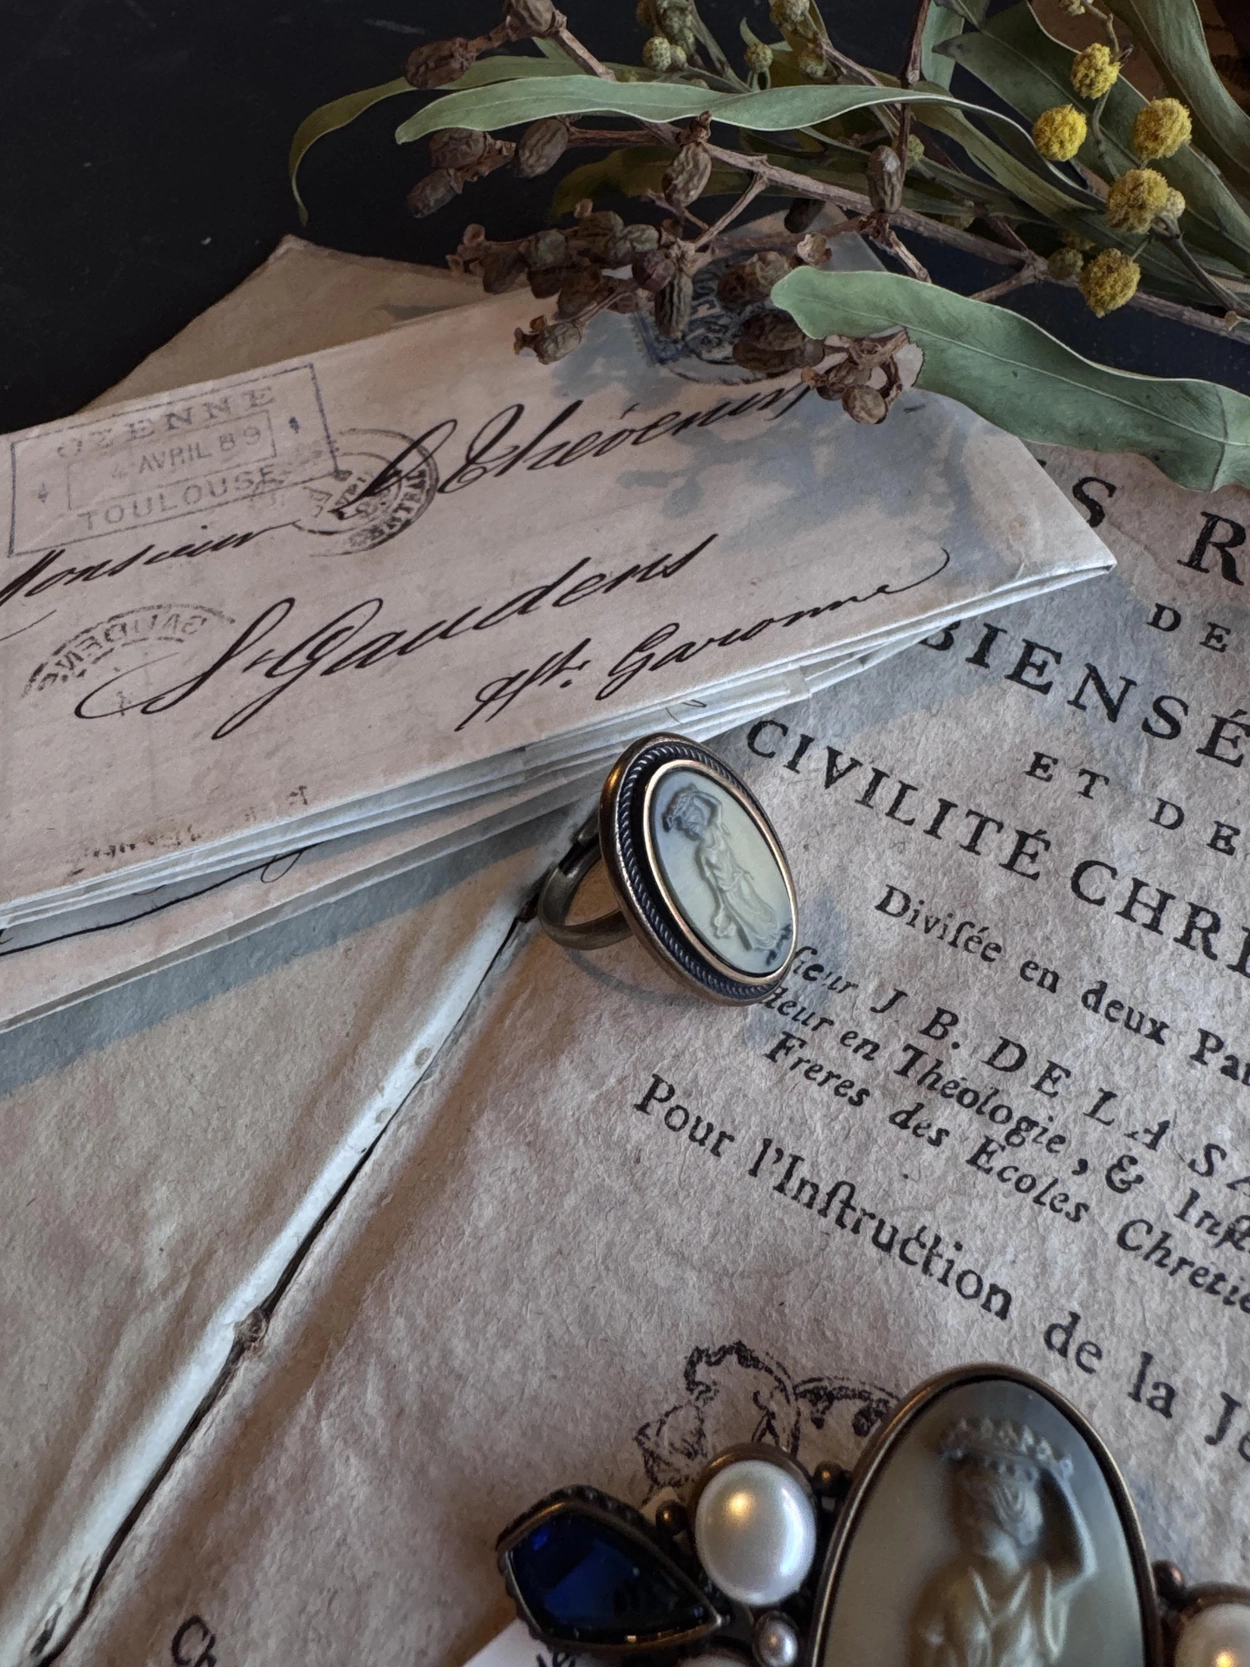 OZENNE
4 AVRIL 89
TOULOUSE
Monsieur L Thévenin
St Gaudens
Hte Garonne
S R
DE
BIENSÉ
ET DE
CIVILITÉ CHRE
Diviſée en deux Pa
ſieur J B. DE LA SA
teur en Théologie, & Inſt
Freres des Ecoles Chretie
Pour l'Inſtruction de la Je
Ch